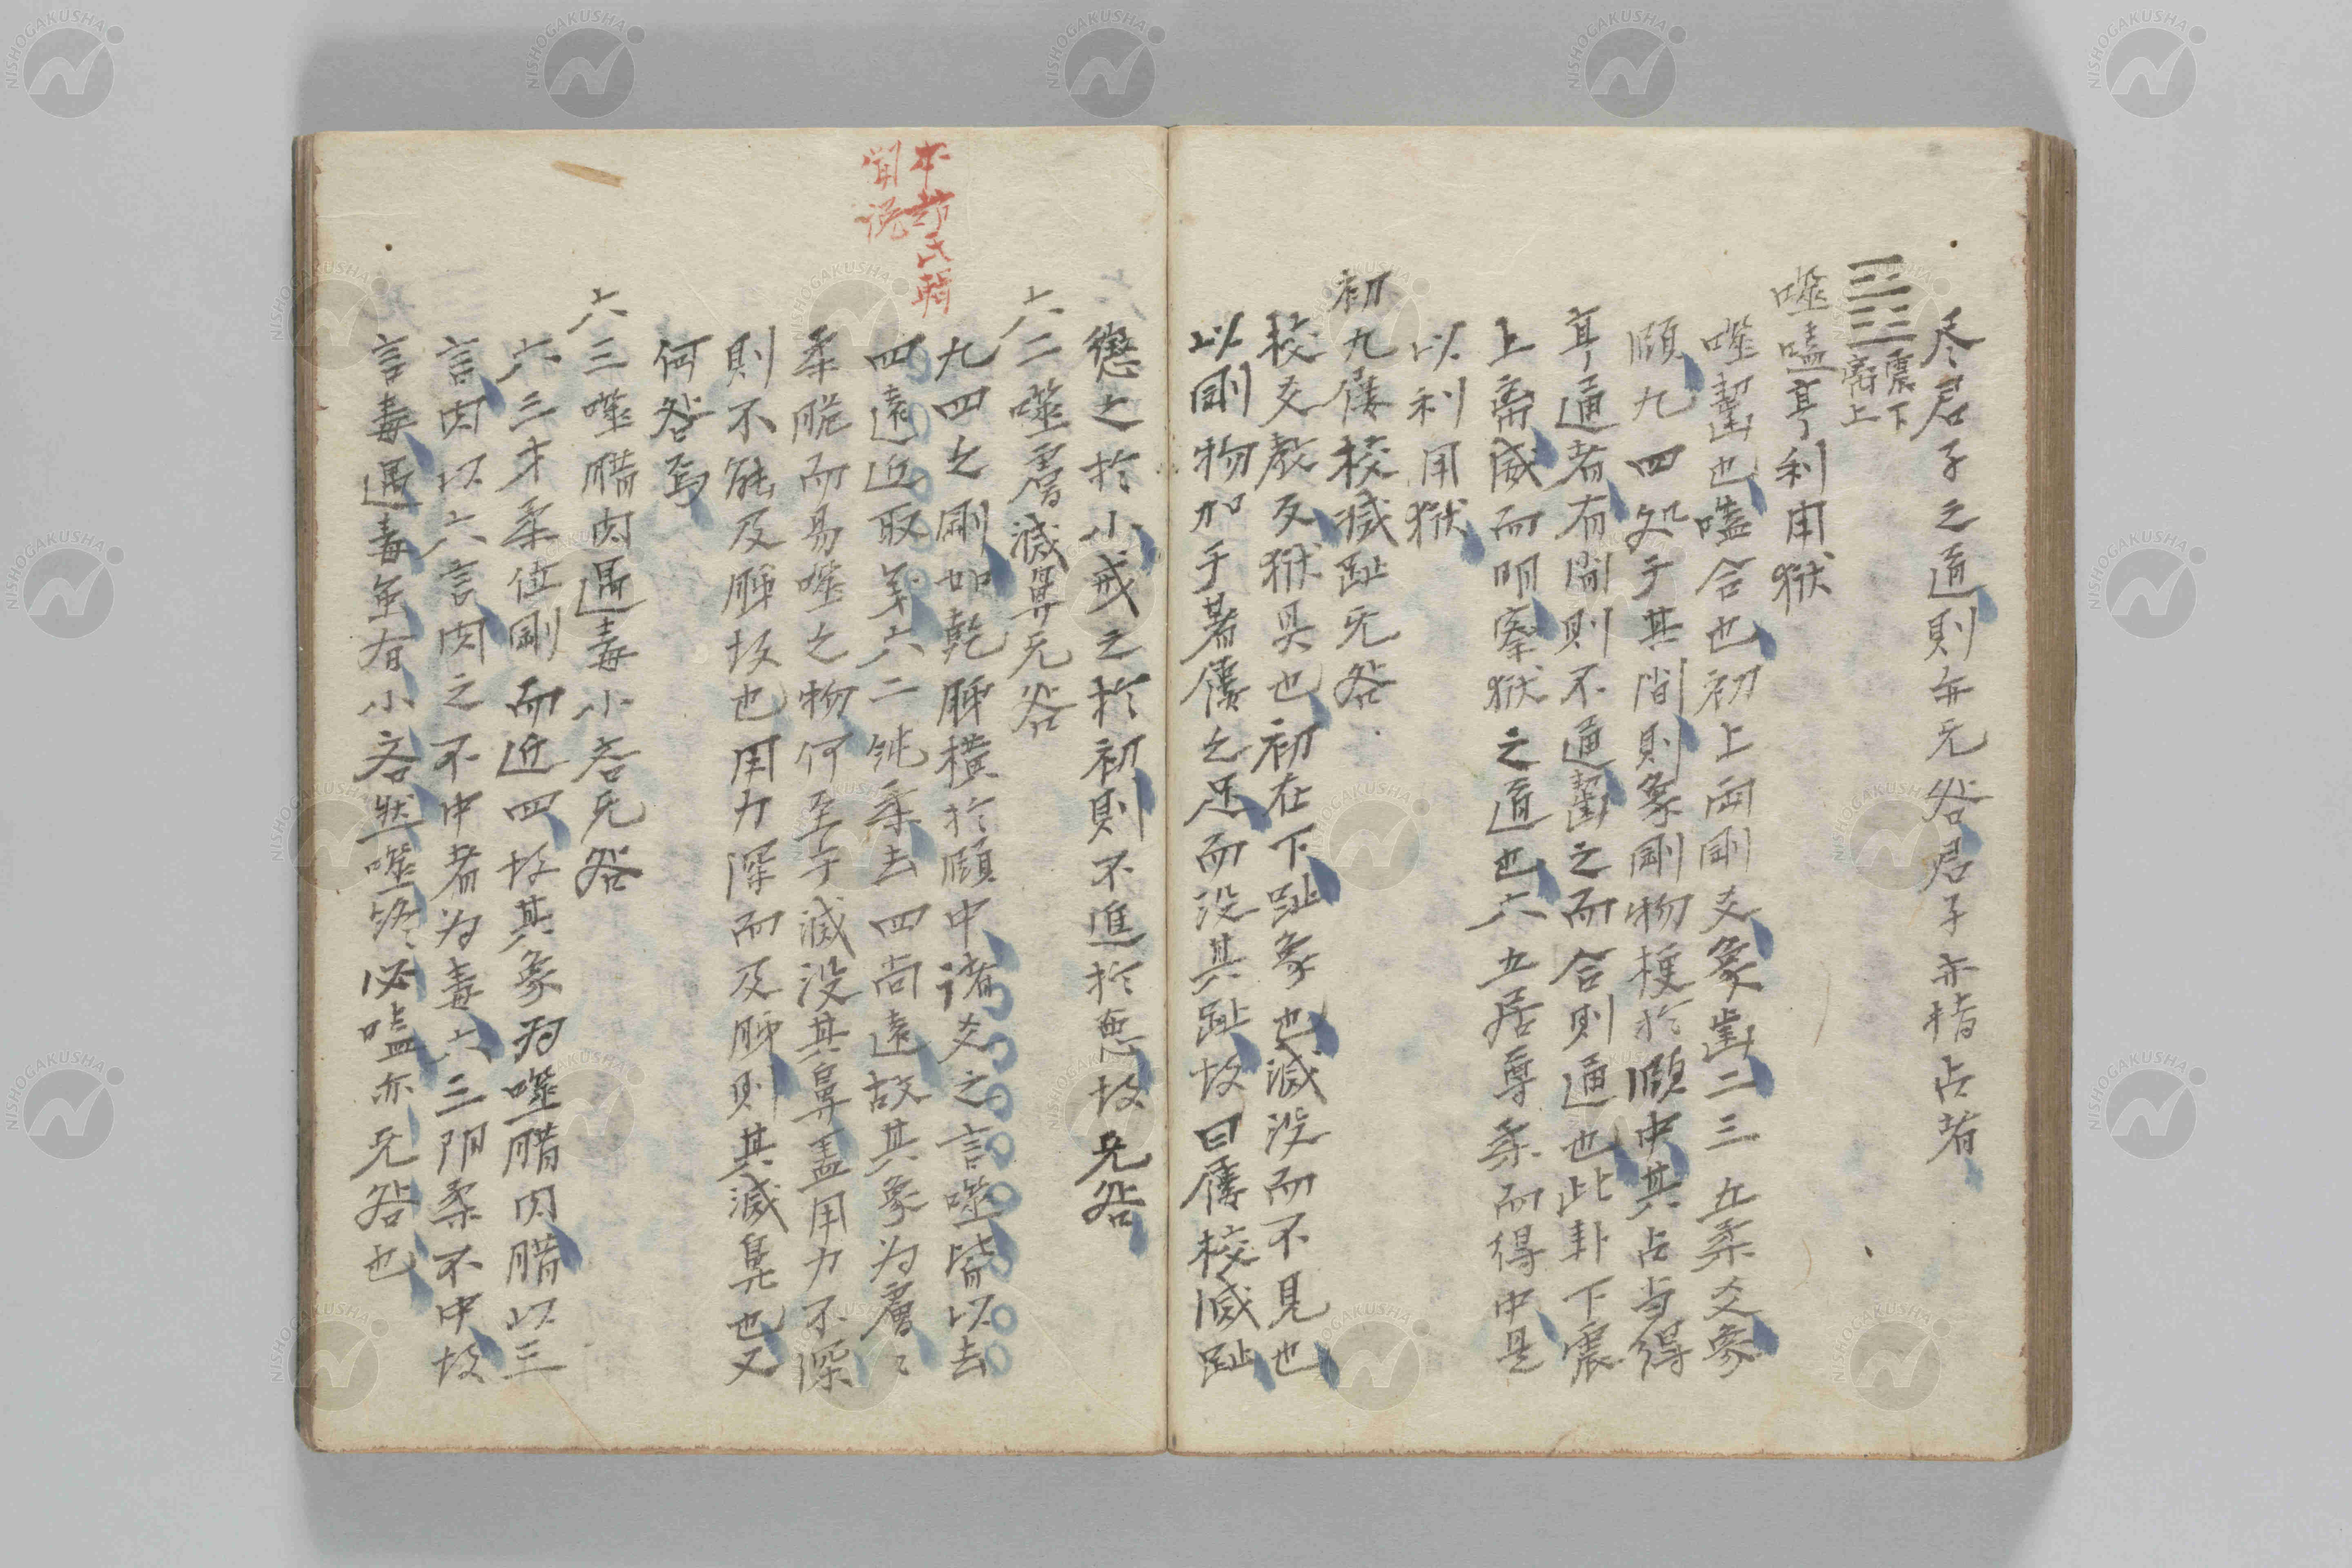 尽君子之道則亦无咎君子亦指占者
震下
离上
噬嗑亨利用獄
噬齧也嗑合也初上両剛爻象齒二三五柔爻象
頤九四処于其間則象剛物梗於頤中其占当得
亨通者有間則不通齧之而合則通也此卦下震
上离威而明察獄之道也六五居尊柔而得中是
以利用獄
初九屨校滅趾无咎
校交教反獄具也初在下趾象也滅没而不見也
以剛物加于著屨之足而没其趾故曰屨校滅趾
懲之於小戒之於初則不進於悪故无咎
六二噬膚滅鼻无咎
九四之剛如乾胏横於頤中諸爻之言噬皆以去
四遠近取象六二純柔去四尚遠故其象为膚〻
柔脆而易噬之物何至于滅没其鼻盖用力不深
則不能及胏故也用力深而及胏則其滅鼻也又
何咎焉
六三噬腊肉遇毒小吝无咎
六三才柔位剛而近四故其象为噬腊肉腊以三
言肉以六言肉之不中者为毒六三阴柔不中故
言毒遇毒虽有小吝然噬終必嗑亦无咎也
NISHOGAKUSHA